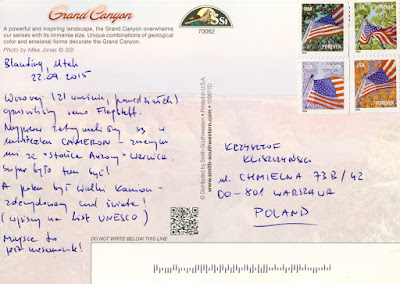 Grand Canyon
A powerful and inspiring landscape, the Grand Canyon overwhelms
our senses with its immense size. Unique combinations of geological
color and erosional forms decorate the Grand Canyon.
Photo by Mike Jones © SSI
SSI
70062
Blanding, Utah
22.09.2015
Wczoraj (21 września, poniedziałek)
opuściliśmy rano Flagstaff.
Najpierw zatrzymaliśmy się w
miasteczku CAMERON - znanym
mi ze "stolice Arizony"
Super było tam być!
A potem był Wielki Kanion -
zdecydowany cud świata!
(wpisany na list UNESCO)
Miejsce to
jest niesamowite!
© Distributed by Smith-Southwestern • Printed in U.S.A.
www.smith-southwestern.com
DO NOT WRITE BELOW THIS LINE
USA
FOREVER
USA
FOREVER
USA
FOREVER
USA
FOREVER
KRZYSZTOF
KLISZCZYŃSKI
ul. CHMIELNA 73B/42
00-801 WARSZAWA
POLAND